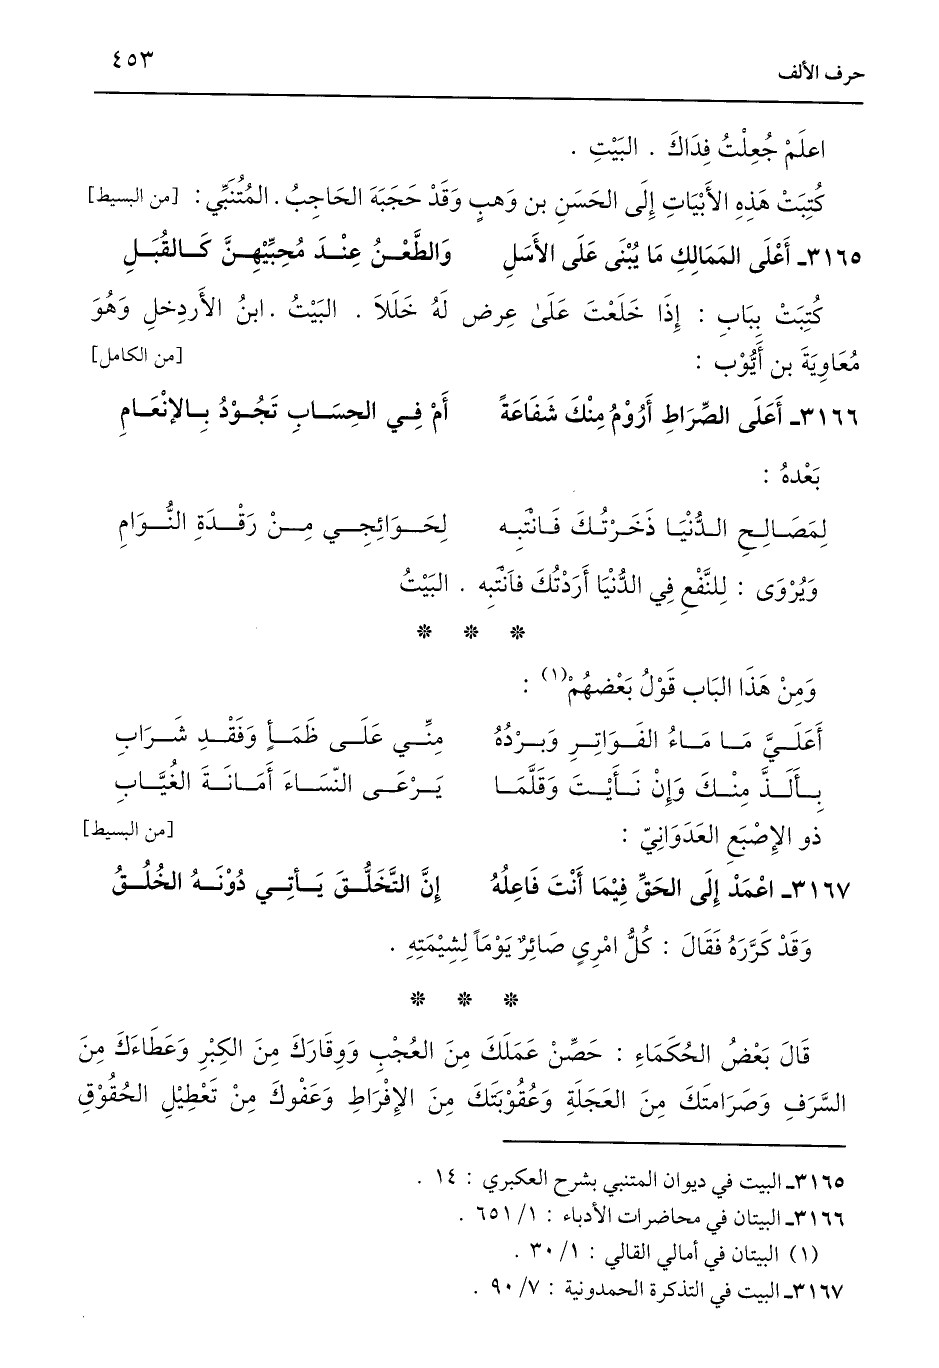 حرف الألف ٤٥٣
اعلَمْ جُعِلْتُ فِدَاكَ . البَيْتِ .
كُتِبَتْ هَذِهِ الأَبْيَاتِ إِلَى الحَسَنِ بن وَهبٍ وَقَدْ حَجَبَهَ الحَاجِبُ. المُتُنَبِّي : [من البسيط]
٣١٦٥ـ أَعْلَى المَمَالِكِ مَا يُبْنَى عَلَى الأَسَلِ وَالطَّعْنُ عِنْدَ مُحِبِّيْهِنَّ كَالقُبَلِ
كُتِبَتْ بِبَابِ : إِذَا خَلَعْتَ عَلَىٰ عِرضِ لَهُ خَلَلاَ . البَيْتُ . ابنُ الأَردِخلِ وَهُوَ
مُعَاوِيَةَ بن أَيُّوْب : [من الكامل]
٣١٦٦ـ أَعَلَى الصِّرَاطِ أَرُوْمُ مِنْكَ شَفَاعَةً أَمْ فِي الحِسَابِ تَجُوْدُ بِالإِنْعَامِ
بَعْدهُ :
لِمَصَالِحِ الدُّنْيَا ذَخَرْتُكَ فَانْتَبِه لِحَوَائِجِي مِنْ رَقْدَةِ النُّوَامِ
وَيُرْوَى : لِلنَّفْعِ فِي الدُّنْيَا أَرَدْتُكَ فَآنْتَبِه . البَيْتُ
* * *
وَمِنْ هَذَا البَاب قَوْلُ بَعْضهُمْ(١) :
أَعَلَيَّ مَا مَاءُ الفَوَاتِرِ وَبَرْدُهُ مِنِّي عَلَى ظَمَأٍ وَفَقْدِ شَرَابِ
بِأَلَذَّ مِنْكَ وَإِنْ نَأَيْتَ وَقَلَّمَا يَرْعَى النِّسَاءَ أَمَانَةَ الغُيَّابِ
ذو الإِصْبَعِ العَدَوَانِيّ : [من البسيط]
٣١٦٧ـ اعْمَدْ إِلَى الحَقِّ فِيْمَا أَنْتَ فَاعِلهُ إِنَّ التَّخَلُّقَ يَأتِي دُوْنَهُ الخُلُقُ
وَقَدْ كَرَّرَهُ فَقَالَ : كُلُّ امْرِىٍ صَائِرٌ يَوْمَاً لِشِيْمَتِهِ .
* * *
قَالَ بَعْضُ الحُكَمَاءِ : حَصِّنْ عَمَلَكَ مِنَ العُجْبِ وَوِقَارَكَ مِنَ الكِبْرِ وَعَطَاءَكَ مِنَ
السَّرَفِ وَصَرَامَتَكَ مِنَ العَجَلَةِ وَعُقُوْبَتَكَ مِنَ الإِفْرَاطِ وَعَفْوكَ مِنْ تَعْطِيْلِ الحُقُوْقِ
٣١٦٥ـ البيت في ديوان المتنبي بشرح العكبري : ١٤ .
٣١٦٦ـ البيتان في محاضرات الأدباء : ٦٥١/١ .
(١) البيتان في أمالي القالي : ٣٠/١ .
٣١٦٧ـ البيت في التذكرة الحمدونية : ٩٠/٧ .